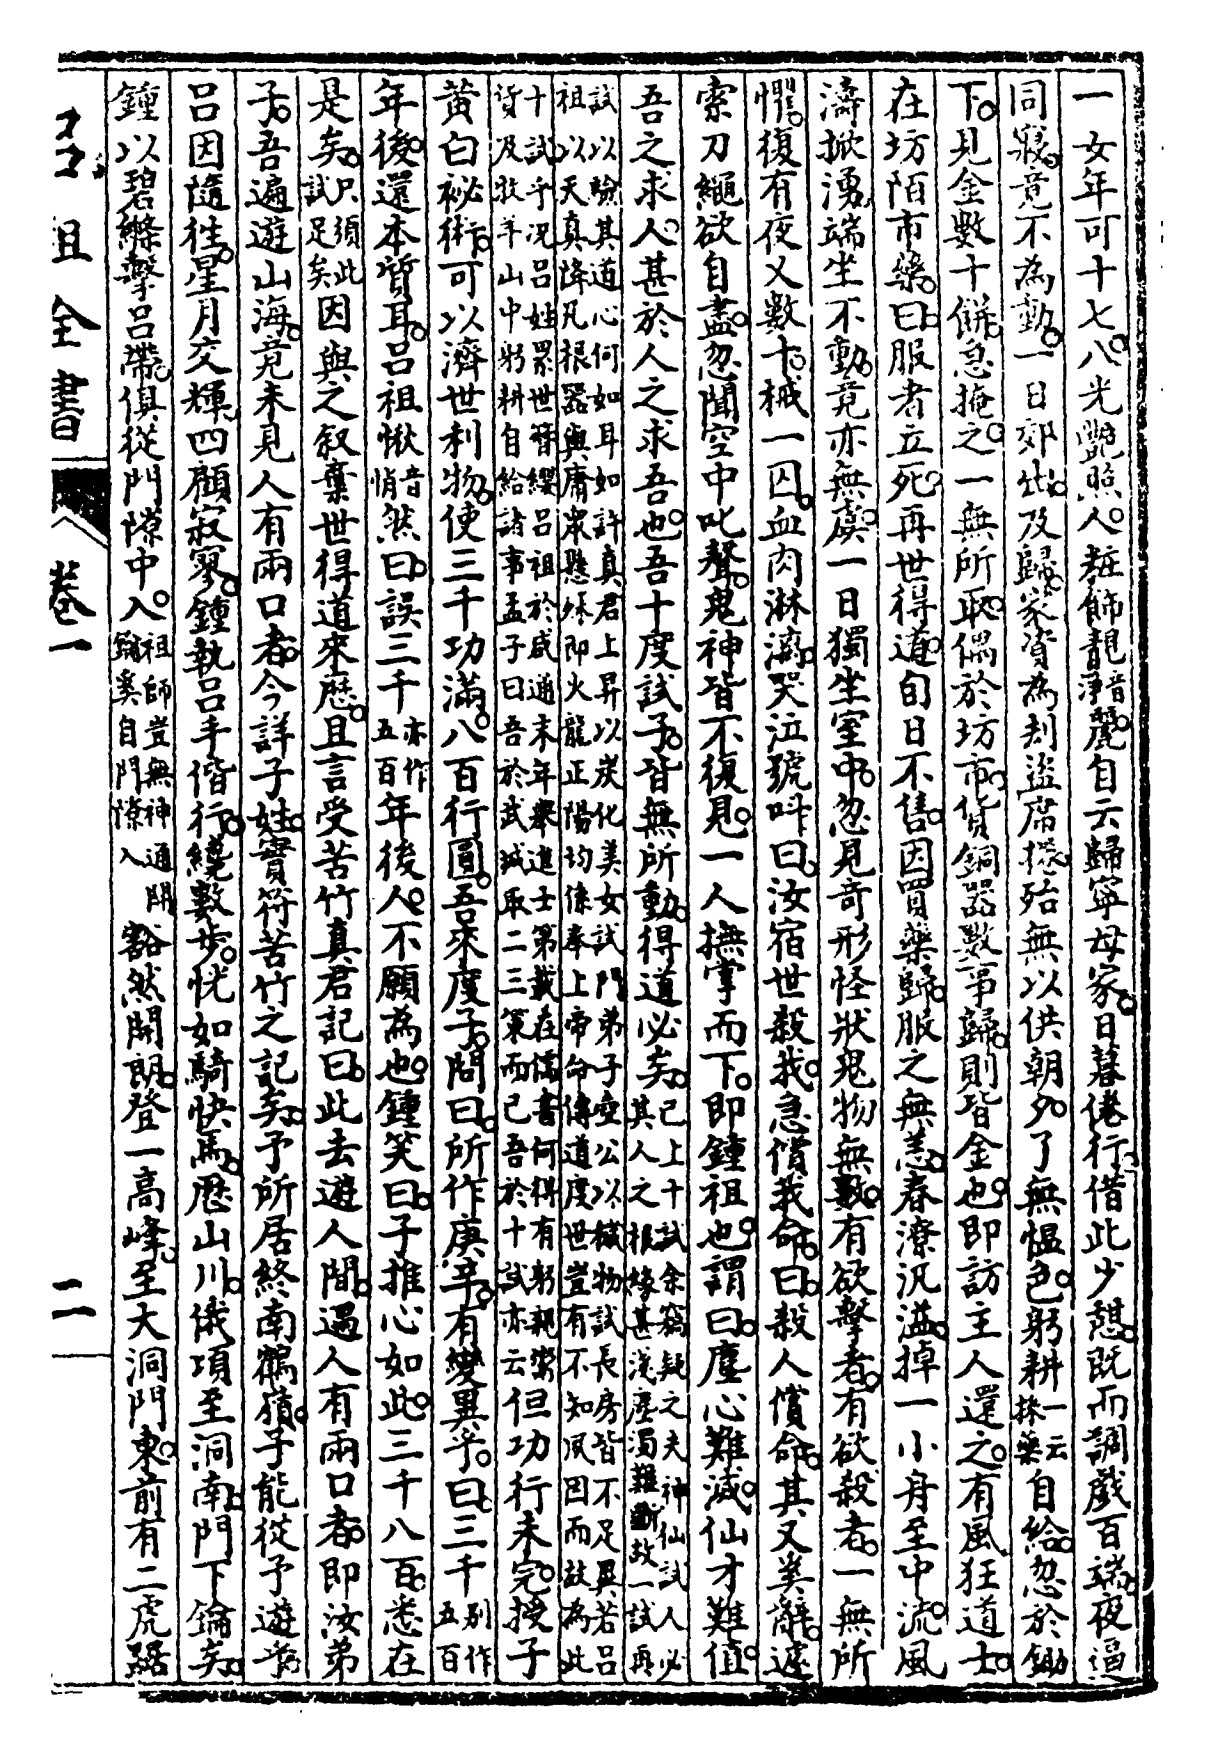 一女年可十七八光艷照人粧飾靚音淨麗自云歸寧母家日暮倦行借此少憩既而調戲百端夜逼
同寢竟不為動一日郊出及歸家資為刦盜席捲殆無以供朝夕了無慍色躬耕一云採藥自給忽於鋤
下見金數十餅急掩之一無所取偶於坊市貨銅器數事歸則皆金也即訪主人還之有風狂道士
在坊陌市藥曰服者立死再世得道旬日不售因買藥歸服之無恙春潦汎溢掉一小舟至中流風
濤掀湧端坐不動竟亦無虞一日獨坐室中忽見奇形怪狀鬼物無數有欲擊者有欲殺者一無所
懼復有夜乂數十械一囚血肉淋漓哭泣號叫曰汝宿世殺我急償我命曰殺人償命其又奚辭遽
索刀繩欲自盡忽聞空中叱聲鬼神皆不復見一人撫掌而下即鍾祖也謂曰塵心難滅仙才難值
吾之求人甚於人之求吾也吾十度試子皆無所動得道必矣已上十試余竊疑之夫神仙試人必其人之根緣甚淺塵濁難斷故一試再
試以驗其道心何如耳如許真君上昇以炭化美女試門弟子壺公以穢物試長房皆不足異若呂
祖以天真降凡根器與庸衆懸殊即火龍正陽均係奉上帝命傳道度世豈有不知夙因而故為此
十試乎况呂姓累世簪纓呂祖於咸通末年舉進士第載在儒書何得有躬親鬻
貨及牧羊山中躬耕自給諸事孟子曰吾於武城取二三策而已吾於十試亦云但功行未完授子
黃白祕術可以濟世利物使三千功滿八百行圓吾來度子問曰所作庚辛有變異乎曰三千別作五百
年後還本質耳呂祖愀音悄然曰誤三千亦作五百年後人不願為也鍾笑曰子推心如此三千八百悉在
是矣只須此試足矣因與之叙棄世得道來歷且言受苦竹真君記曰此去遊人間遇人有兩口者即汝弟
子吾遍遊山海竟未見人有兩口者今詳子姓實符苦竹之記矣予所居終南鶴嶺子能從予遊乎
呂因隨往星月交輝四顧寂寥鍾執呂手偕行繞數步恍如騎快馬歷山川俄項至洞南門下鑰矣
鍾以碧縧擊呂帶俱從門隙中入祖師豈無神通開鑰奚自門隙入豁然開朗登一高峰至大洞門東前有二虎踞
呂祖全書
卷一
二